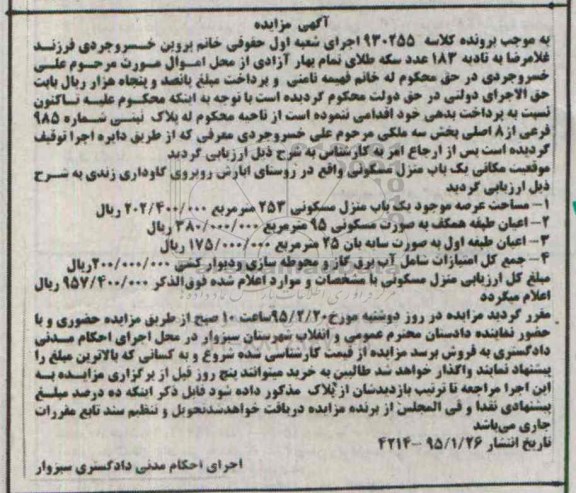 آگهی مزایده
به موجب پرونده کلاسه ۹۳۰۲۵۵ اجرای شعبه اول حقوقی خانم پروین خسروجردی فرزند
غلامرضا به تادیه ۱۸۳ عدد سکه طلای تمام بهار آزادی از محل اموال مورث مرحوم علی
خسروجردی در حق محکوم له خانم فهیمه ثامنی و پرداخت مبلغ پانصد و پنجاه هزار ریال بابت
حق الاجرای دولتی در حق دولت محکوم گردیده است با توجه به اینکه محکوم علیه تاکنون
نسبت به پرداخت بدهی خود اقدامی ننموده است از ناحیه محکوم له پلاک ثبتی شماره ۹۸۵
فرعی از ۸ اصلی بخش سه ملکی مرحوم علی خسروجردی معرفی که از طریق دایره اجرا توقیف
گردیده است پس از ارجاع امر به کارشناس به شرح ذیل ارزیابی گردید
موقعیت مکانی یک باب منزل مسکونی واقع در روستای ابارش روبروی گاوداری زندی به شرح
ذیل ارزیابی گردید
۱- مساحت عرصه موجود یک باب منزل مسکونی ۲۵۳ مترمربع ۲۰۲/۴۰۰/۰۰۰ ریال
۲- اعیان طبقه همکف به صورت مسکونی ۹۵ مترمربع ۳۸۰/۰۰۰/۰۰۰ ریال
۳- اعیان طبقه اول به صورت سایه بان ۲۵ مترمربع ۱۷۵/۰۰۰/۰۰۰ ریال
۴- جمع کل امتیازات شامل آب برق گاز و محوطه سازی ودیوار کشی ۲۰۰/۰۰۰/۰۰۰ریال
مبلغ کل ارزیابی منزل مسکونی با مشخصات و موارد اعلام شده فوق الذکر ۹۵۷/۴۰۰/۰۰۰ ریال
اعلام میگردد
مقرر گردید مزایده در روز دوشنبه مورخ ۹۵/۲/۲۰ساعت ۱۰ صبح از طریق مزایده حضوری و با
حضور نماینده دادستان محترم عمومی و انقلاب شهرستان سبزوار در محل اجرای احکام مدنی
دادگستری به فروش برسد مزایده از قیمت کارشناسی شده شروع و به کسانی که بالاترین مبلغ را
پیشنهاد نمایند واگذار خواهد شد طالبین به خرید میتوانند پنج روز قبل از برگزاری مزایده به
این اجرا مراجعه تا ترتیب بازدیدشان از پلاک مذکور داده شود قابل ذکر اینکه ده درصد مبلغ
پیشنهادی نقدا و فی المجلس از برنده مزایده دریافت خواهدشدتحویل و تنظیم سند تابع مقررات
جاری می‌باشد
تاریخ انتشار ۹۵/۱/۲۶ -۴۲۱۴
اجرای احکام مدنی دادگستری سبزوار